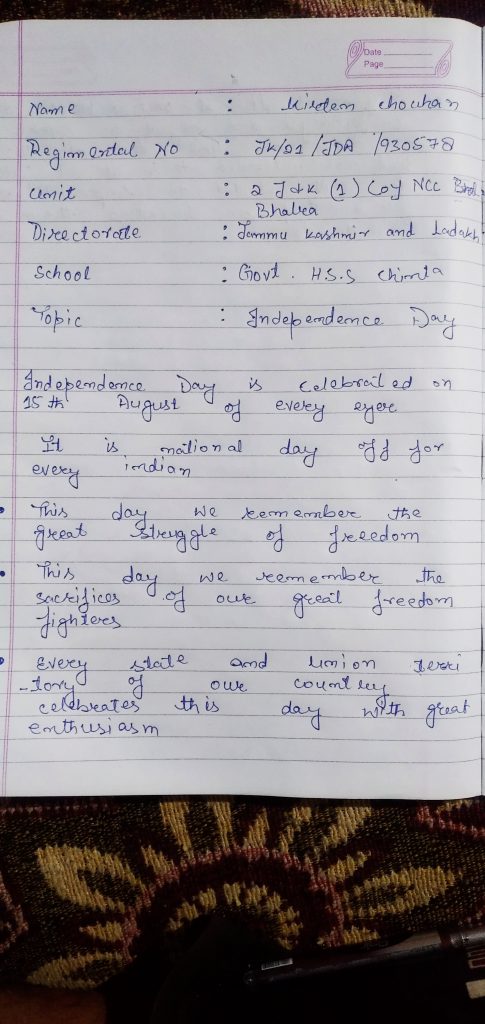 Date
Page
Name : chouhan
Regimental No : JK/21/JDA/930578
Unit : 2 J&K (1) Coy NCC
Bhalra
Directorate : Jammu kashmir and Ladakh
School : Govt. H.S.S Chinta
Topic : Independence Day
Independence Day is celebrated on
15th August of every eyer
It is national day off for
every indian
This day we remember the
great struggle of freedom
This day we remember the
sacrifices of our great freedom
fighters
Every state and union terri
-tory of our country
celebrates this day with great
enthusiasm